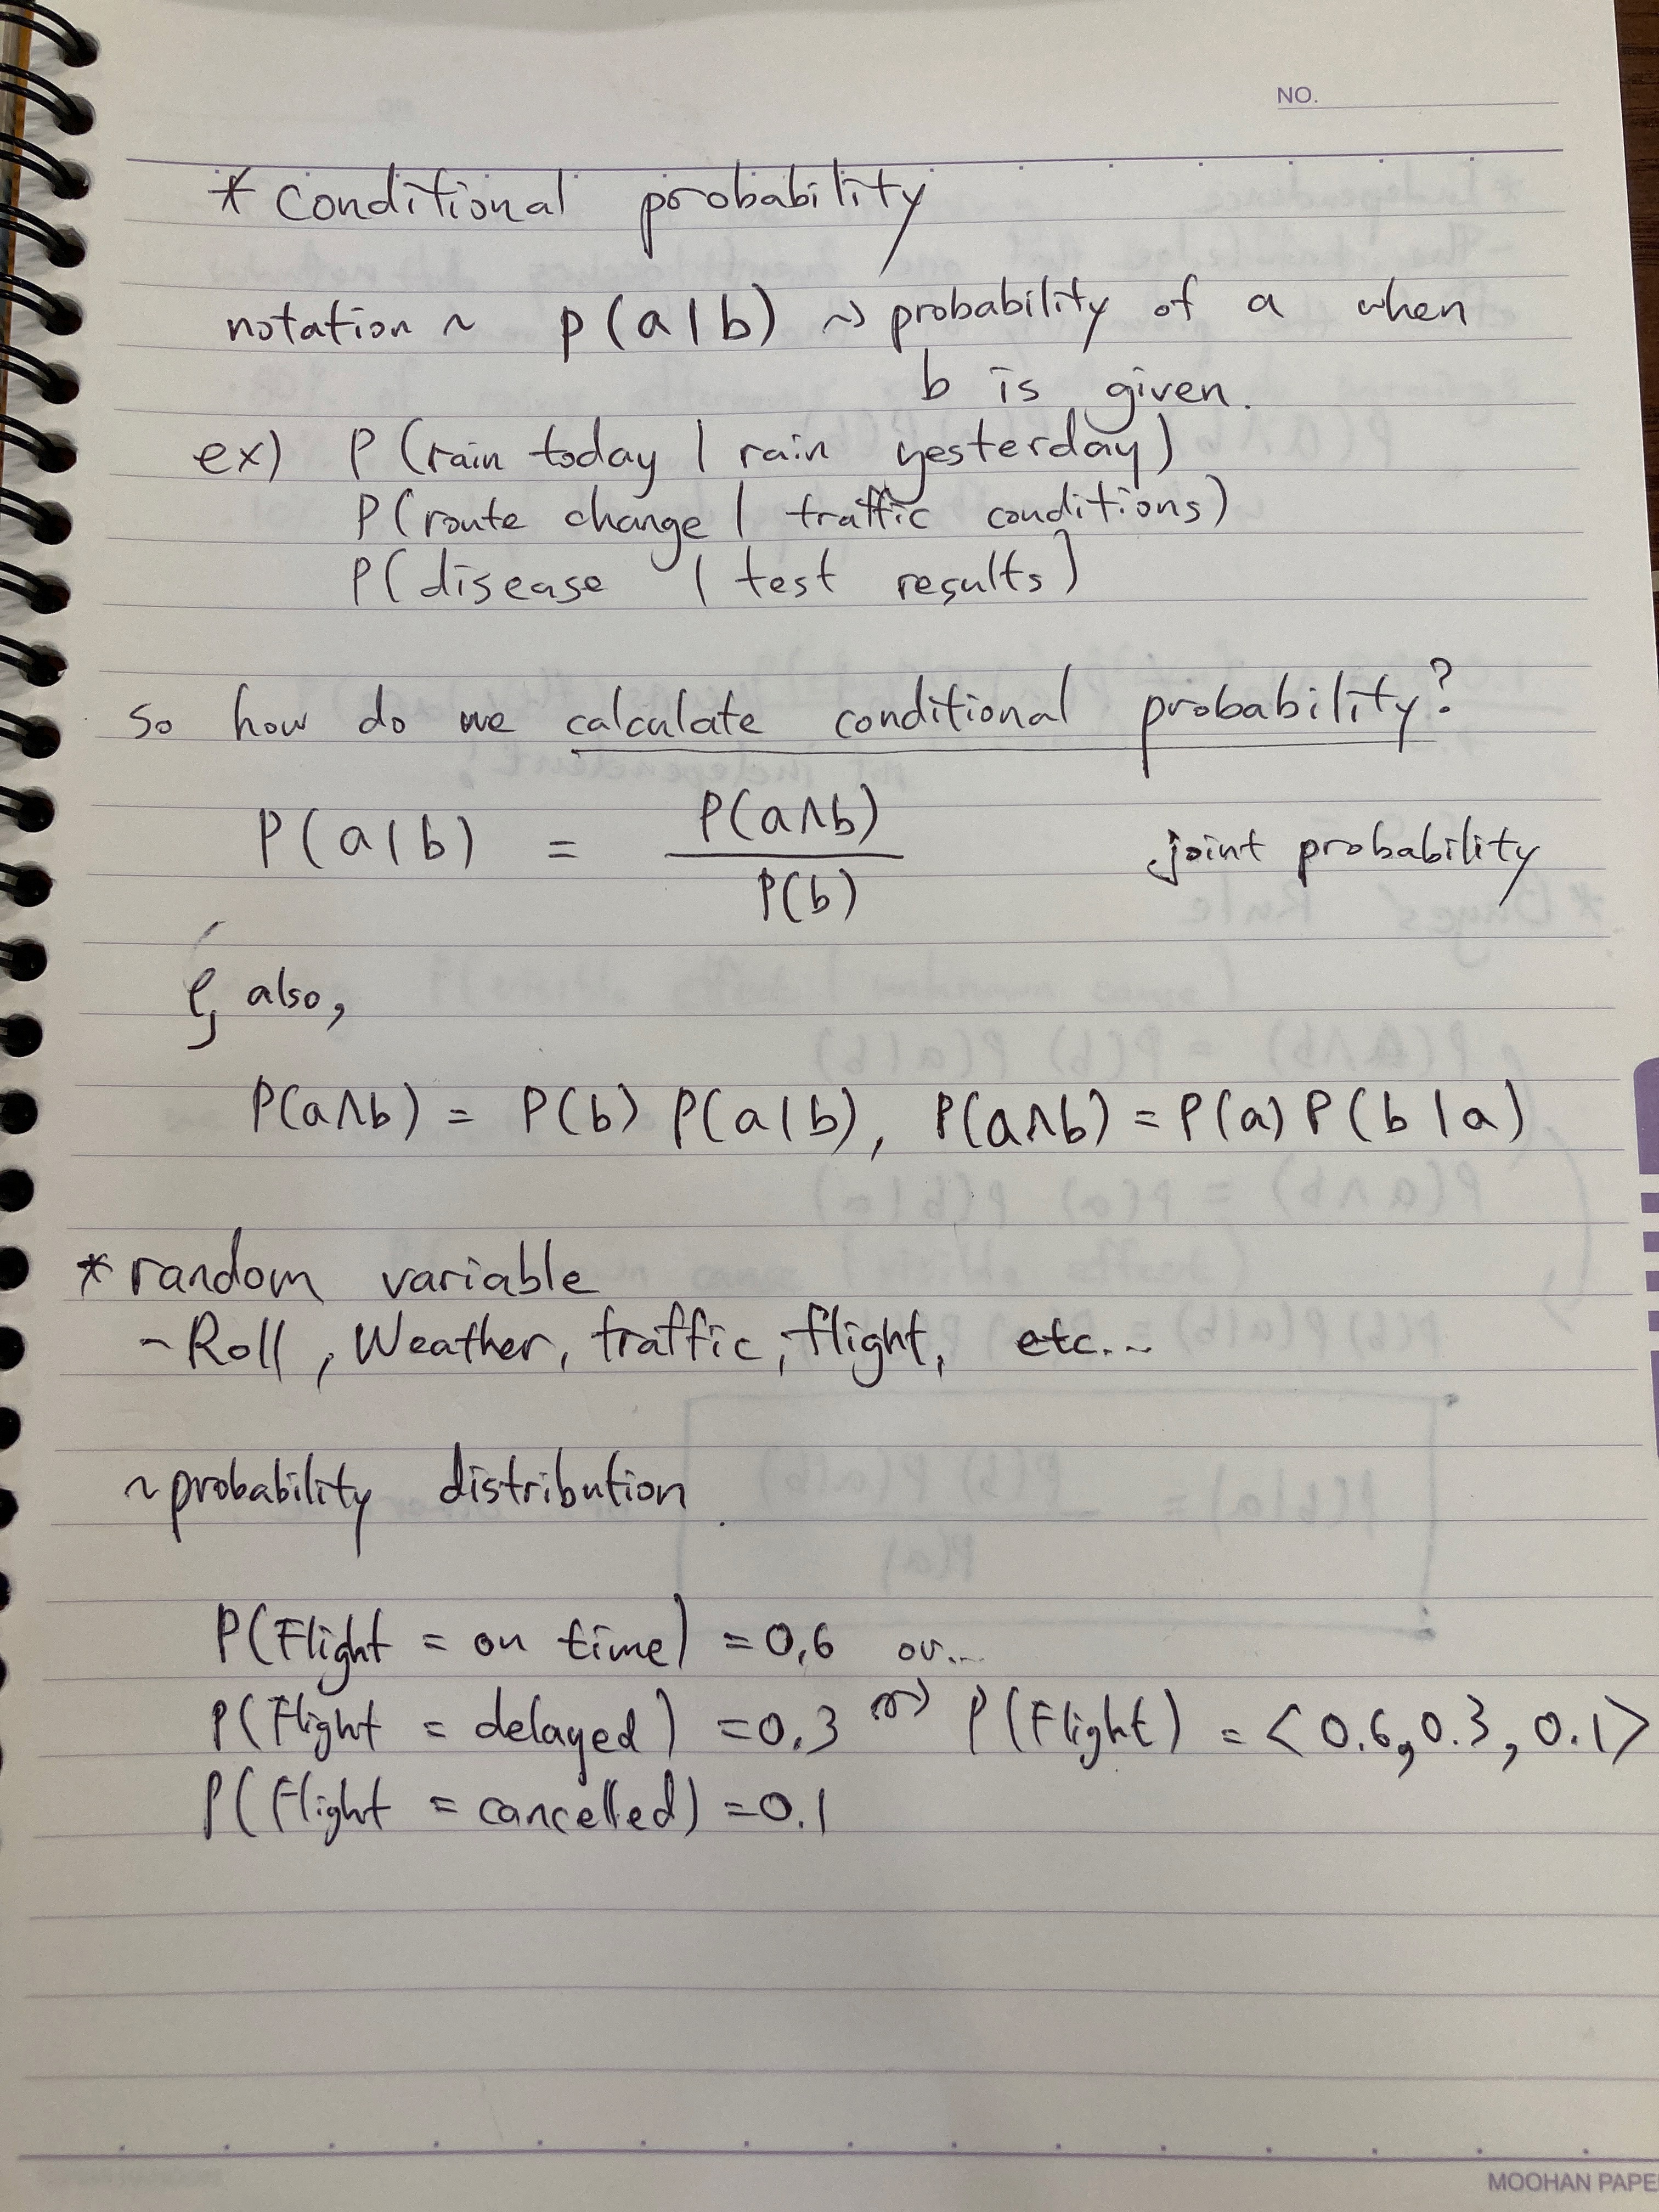 NO.
* conditional probability
notation ~ p(a|b) ~> probability of a when
b is given.
ex) P(rain today | rain yesterday)
P(route change | traffic conditions)
P(disease | test results)
so how do we calculate conditional probability?
P(a|b) = P(a∧b) / P(b) joint probability
also,
P(a∧b) = P(b) P(a|b), P(a∧b) = P(a) P(b|a)
* random variable
~ Roll, Weather, traffic, flight, etc...
~ probability distribution
P(Flight = on time) = 0.6 or...
P(Flight = delayed) = 0.3 ~> P(Flight) = <0.6, 0.3, 0.1>
P(Flight = cancelled) = 0.1
MOOHAN PAPE